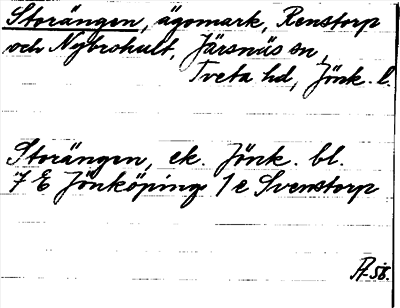 Storängen, ägomark, Renstorp
och Nybrohult, Järsnäs sn,
Tveta hd, Jönk. l.
Storängen, ek. Jönk. bl.
7 E Jönköping 1 e Svenstorp
-58.